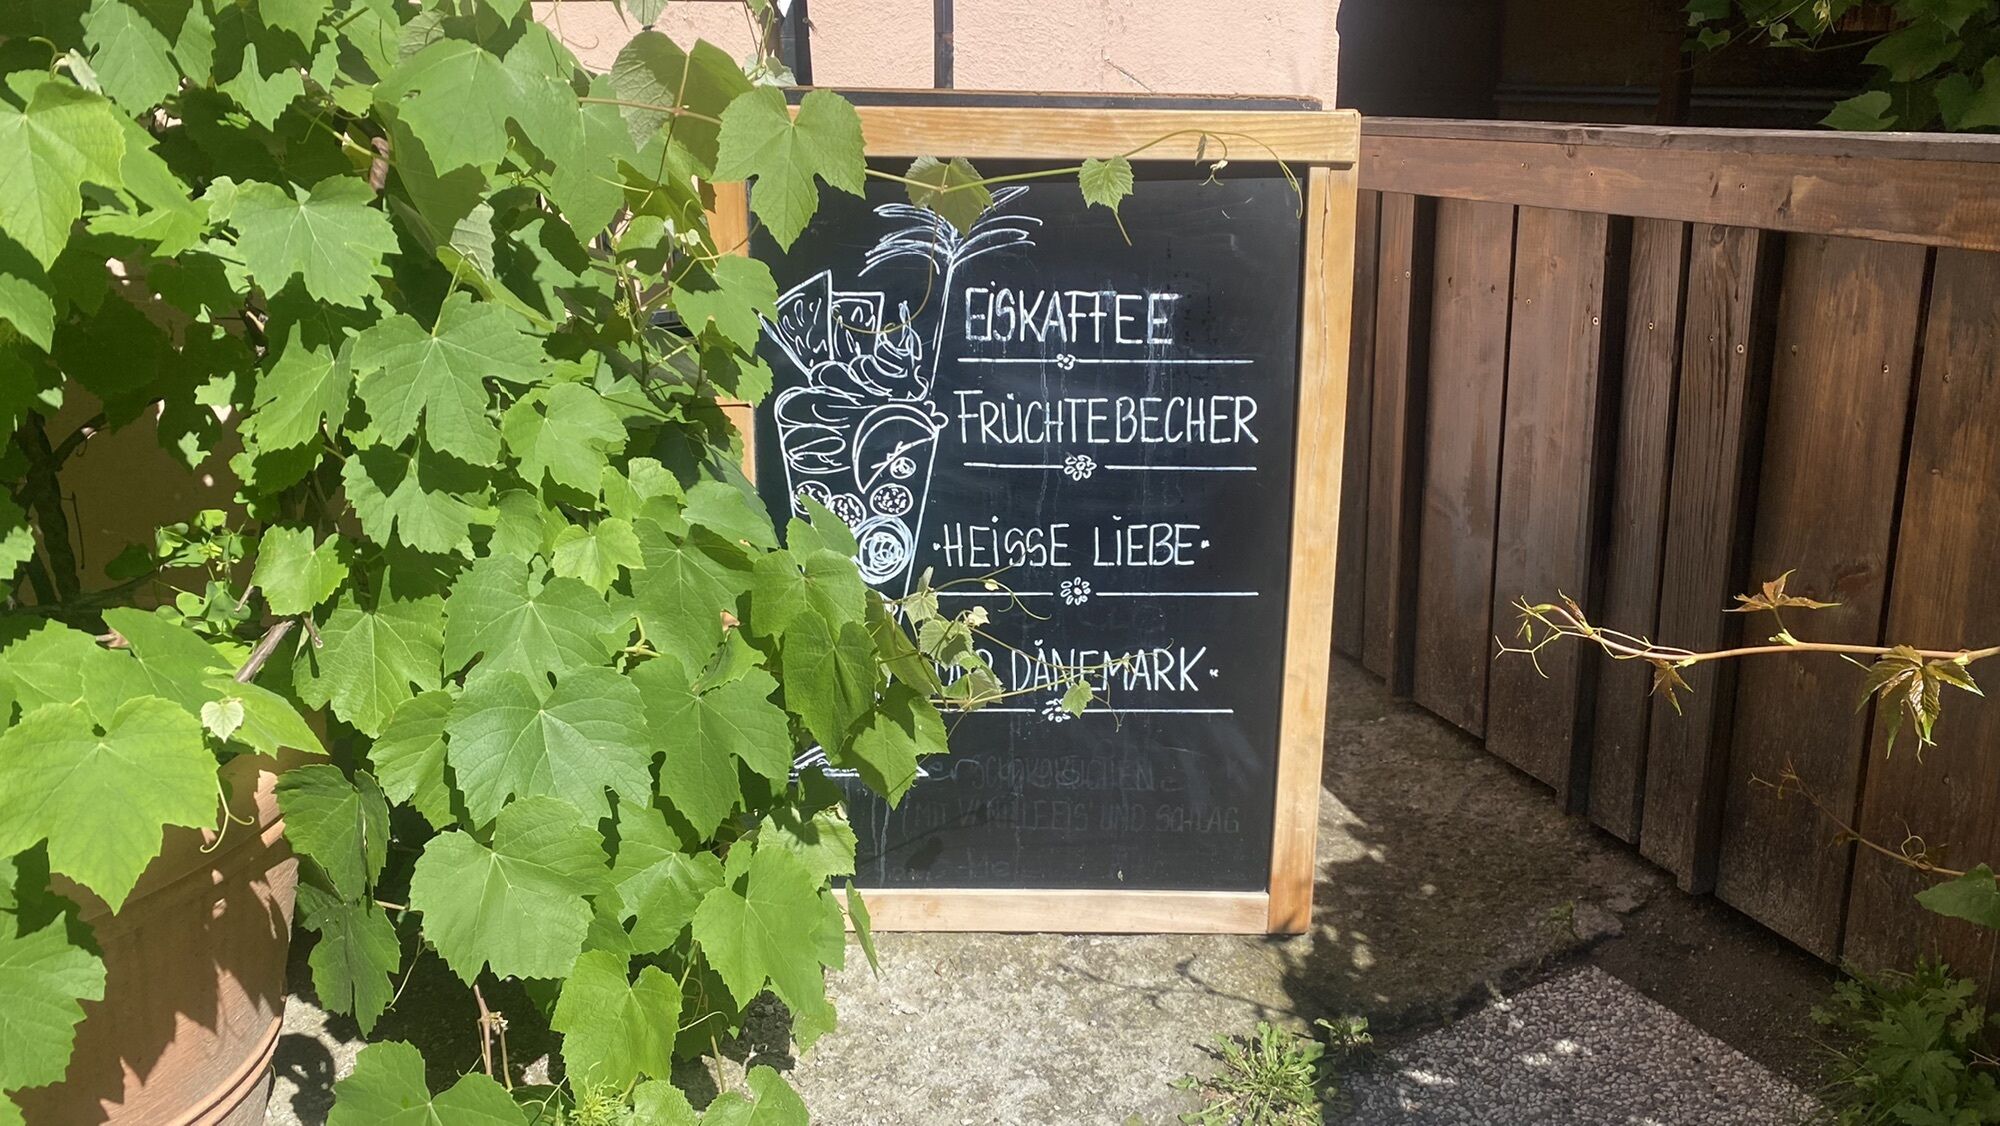 EISKAFFEE
FRÜCHTEBECHER
HEISSE LIEBE
DÄNEMARK
MIT VANILLEEIS UND SCHLAG